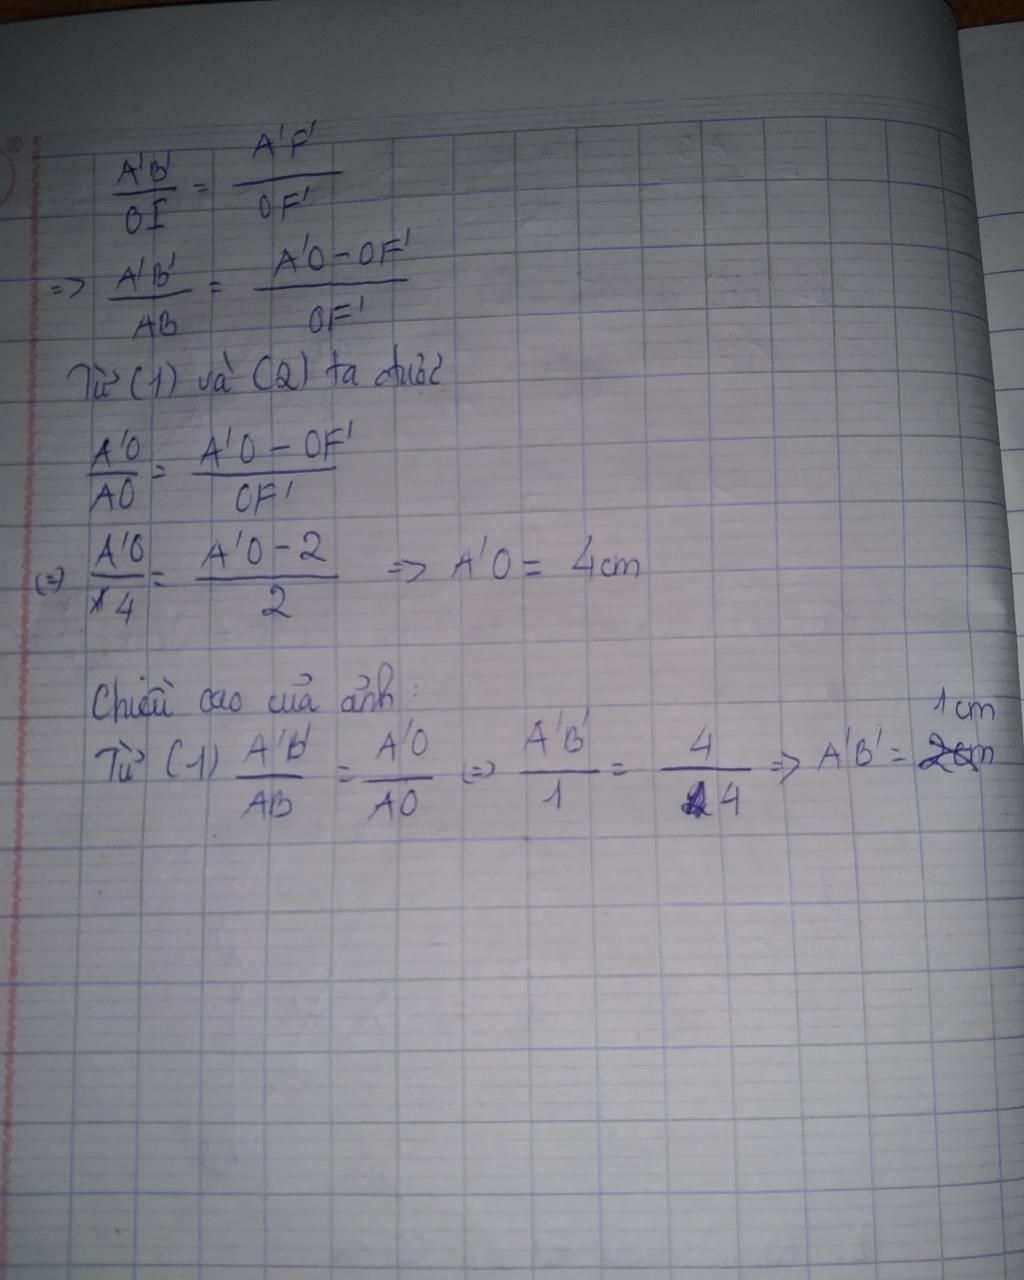 A'B'/OI = A'F'/OF'
=> A'B'/AB = A'O - OF'/OF'
Từ (1) và (2) ta được
A'O/AO = A'O - OF'/OF'
(=) A'O/4 = A'O - 2/2 => A'O = 4cm
Chiều cao của ảnh :
1cm
Từ (1) A'B'/AB = A'O/AO (=) A'B'/1 = 4/4 => A'B' = 2cm